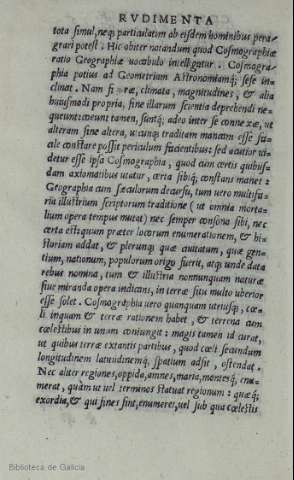 RVDIMENTA
tota simul, neq; particulatim ab eisdem hominibus pera-
grari potest. Hic obiter notandum quod Cosmographiæ
ratio Geographiæ uocabulo intelligitur. Cosmogra-
phia potius ad Geometriam Astronomiamq; sese in
clinat. Nam figuræ, climata, magnitudines, & alia
huiusmodi propria, sine illarum scientia deprehendi ne-
queunt: coeunt tamen, suntq; adeo inter se connexæ, ut
alteram sine altera, utrunq; traditam mancam esse fa-
cile constare possit periculum facientibus: sed acutior ui-
detur esse ipsa Cosmographia, quod cum certis quibus-
dam axiomatibus utatur, certa sibiq; constans manet:
Geographia cum sæculorum decursu, tum uero multifa-
ria illustrium scriptorum traditione (ut omnia morta-
lium opera tempus mutat) nec semper consona sibi, nec
certa est: quum præter locorum enumerationem, & hi-
storiam addat, & plerunq; quæ ciuitatum, quæ gen-
tium, nationum, populorum origo fuerit, atq; unde data
rebus nomina, tum & illustria nonnunquam naturæ
siue miranda opera indicans, in terræ situ multo uberior
esse solet. Cosmographia uero quanquam utriusq;, cœ-
li inquam & terræ rationem habet, & terrena cum
cœlestibus in unum coniungit: magis tamen id curat,
ut quibus terræ extantis partibus, quod cœli secundum
longitudinem latitudinemq; spatium adsit, ostendat.
Nec aliter regiones, oppida, amnes, maria, montesq; enu-
merat, quàm ut uel terminos statuat regionum: quæq;
exordia, & qui fines sint, enumeret, uel sub qua cœlestis
Biblioteca de Galicia